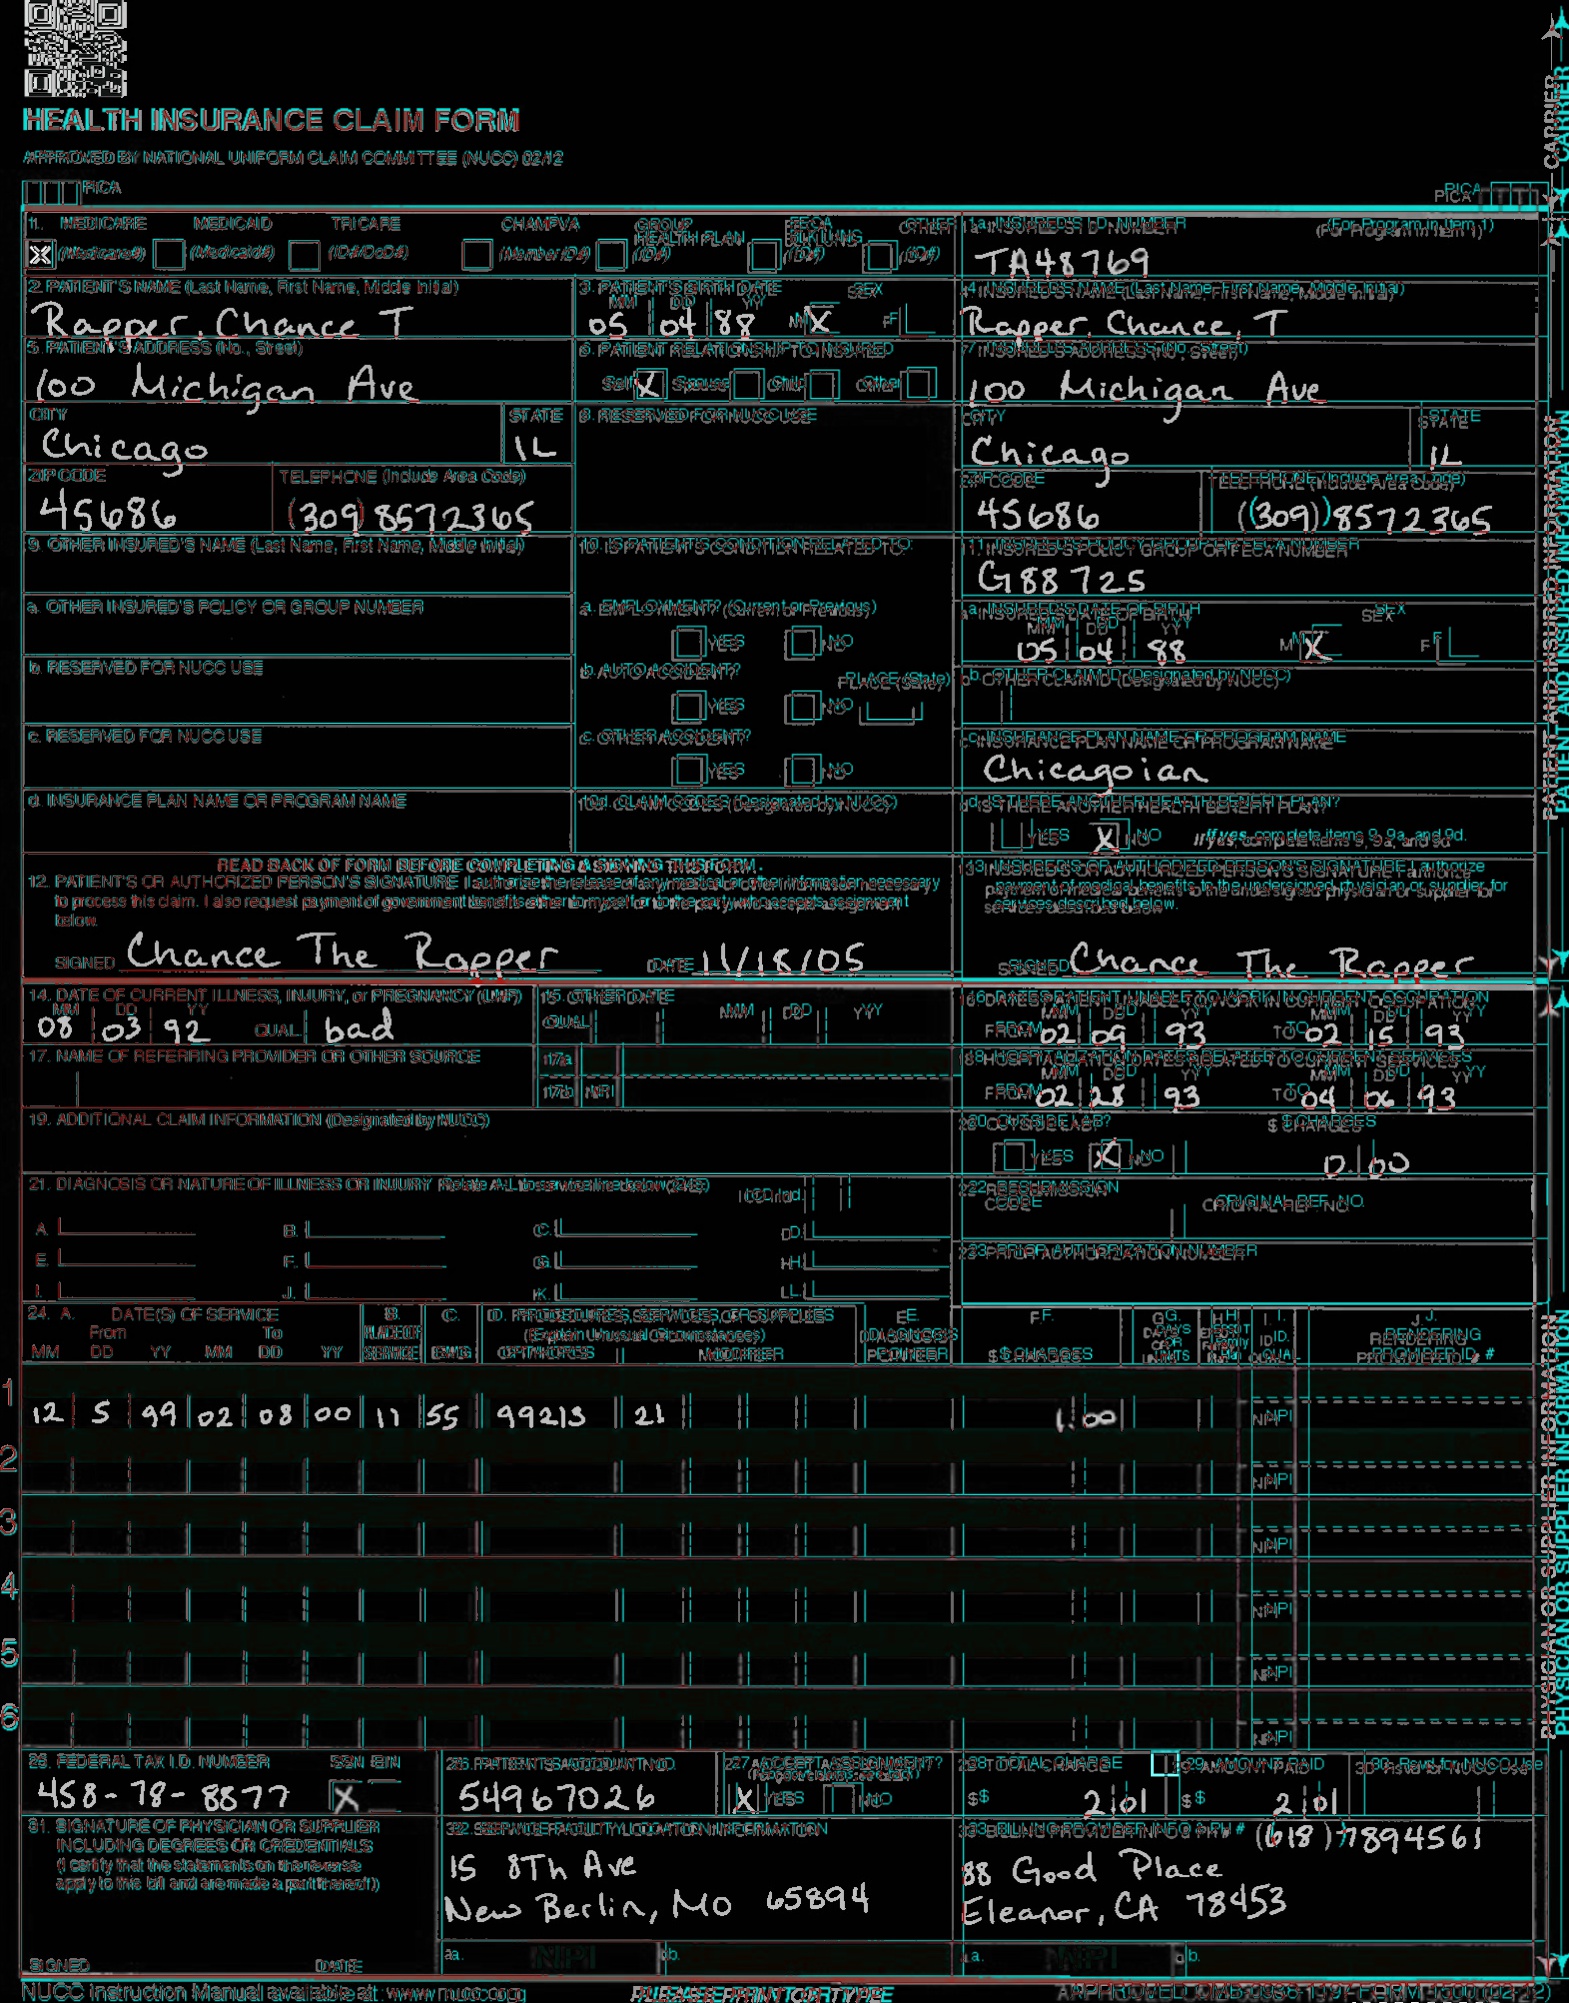 HEALTH INSURANCE CLAIM FORM
APPROVED BY NATIONAL UNIFORM CLAIM COMMITTEE (NUCC) 02/12
PICA
PICA
CARRIER
1. MEDICARE MEDICAID TRICARE CHAMPVA GROUP HEALTH PLAN FECA BLK LUNG OTHER
(Medicare#) (Medicaid#) (ID#/DoD#) (Member ID#) (ID#) (ID#) (ID#)
1a. INSURED'S I.D. NUMBER (For Program in Item 1)
TA48769
2. PATIENT'S NAME (Last Name, First Name, Middle Initial)
Rapper, Chance T
3. PATIENT'S BIRTH DATE SEX
MM DD YY
05 04 88 M X F
4. INSURED'S NAME (Last Name, First Name, Middle Initial)
Rapper, Chance, T
5. PATIENT'S ADDRESS (No., Street)
100 Michigan Ave
6. PATIENT RELATIONSHIP TO INSURED
Self X Spouse Child Other
7. INSURED'S ADDRESS (No., Street)
100 Michigan Ave
CITY STATE
Chicago IL
8. RESERVED FOR NUCC USE
CITY STATE
Chicago IL
ZIP CODE TELEPHONE (Include Area Code)
45686 (309) 8572365
ZIP CODE TELEPHONE (Include Area Code)
45686 (309) 8572365
9. OTHER INSURED'S NAME (Last Name, First Name, Middle Initial)
10. IS PATIENT'S CONDITION RELATED TO:
11. INSURED'S POLICY GROUP OR FECA NUMBER
G88725
a. OTHER INSURED'S POLICY OR GROUP NUMBER
a. EMPLOYMENT? (Current or Previous)
YES NO
a. INSURED'S DATE OF BIRTH SEX
MM DD YY
05 04 88 M X F
b. RESERVED FOR NUCC USE
b. AUTO ACCIDENT? PLACE (State)
YES NO
b. OTHER CLAIM ID (Designated by NUCC)
c. RESERVED FOR NUCC USE
c. OTHER ACCIDENT?
YES NO
c. INSURANCE PLAN NAME OR PROGRAM NAME
Chicagoian
d. INSURANCE PLAN NAME OR PROGRAM NAME
10d. CLAIM CODES (Designated by NUCC)
d. IS THERE ANOTHER HEALTH BENEFIT PLAN?
YES X NO If yes, complete items 9, 9a, and 9d.
READ BACK OF FORM BEFORE COMPLETING & SIGNING THIS FORM.
12. PATIENT'S OR AUTHORIZED PERSON'S SIGNATURE I authorize the release of any medical or other information necessary
to process this claim. I also request payment of government benefits either to myself or to the party who accepts assignment
below.
SIGNED Chance The Rapper DATE 11/18/05
13. INSURED'S OR AUTHORIZED PERSON'S SIGNATURE I authorize
payment of medical benefits to the undersigned physician or supplier for
services described below.
SIGNED Chance The Rapper
PATIENT AND INSURED INFORMATION
14. DATE OF CURRENT ILLNESS, INJURY, or PREGNANCY (LMP)
MM DD YY
08 03 92 QUAL. bad
15. OTHER DATE
QUAL. MM DD YY
16. DATES PATIENT UNABLE TO WORK IN CURRENT OCCUPATION
MM DD YY MM DD YY
FROM 02 09 93 TO 02 15 93
17. NAME OF REFERRING PROVIDER OR OTHER SOURCE
17a.
17b. NPI
18. HOSPITALIZATION DATES RELATED TO CURRENT SERVICES
MM DD YY MM DD YY
FROM 02 28 93 TO 04 06 93
19. ADDITIONAL CLAIM INFORMATION (Designated by NUCC)
20. OUTSIDE LAB? $ CHARGES
YES X NO 0.00
21. DIAGNOSIS OR NATURE OF ILLNESS OR INJURY Relate A-L to service line below (24E) ICD Ind.
A. B. C. D.
E. F. G. H.
I. J. K. L.
22. RESUBMISSION CODE ORIGINAL REF. NO.
23. PRIOR AUTHORIZATION NUMBER
24. A. DATE(S) OF SERVICE B. C. D. PROCEDURES, SERVICES, OR SUPPLIES E. F. G. H. I. J.
From To PLACE OF SERVICE EMG (Explain Unusual Circumstances) DIAGNOSIS POINTER $ CHARGES DAYS OR UNITS EPSDT Family Plan ID. QUAL. RENDERING PROVIDER ID. #
MM DD YY MM DD YY CPT/HCPCS MODIFIER
1
12 5 99 02 08 00 11 55 99213 21 1.00 NPI
2 NPI
3 NPI
4 NPI
5 NPI
6 NPI
PHYSICIAN OR SUPPLIER INFORMATION
25. FEDERAL TAX I.D. NUMBER SSN EIN
458-78-8877 X
26. PATIENT'S ACCOUNT NO.
54967026
27. ACCEPT ASSIGNMENT?
X YES NO
28. TOTAL CHARGE
$ 2 01
29. AMOUNT PAID
$ 2 01
30. Rsvd for NUCC Use
31. SIGNATURE OF PHYSICIAN OR SUPPLIER
INCLUDING DEGREES OR CREDENTIALS
(I certify that the statements on the reverse
apply to this bill and are made a part thereof.)
SIGNED DATE
32. SERVICE FACILITY LOCATION INFORMATION
15 8Th Ave
New Berlin, MO 65894
a. NPI b.
33. BILLING PROVIDER INFO & PH # (618) 7894561
88 Good Place
Eleanor, CA 78453
a. NPI b.
NUCC Instruction Manual available at: www.nucc.org
PLEASE PRINT OR TYPE